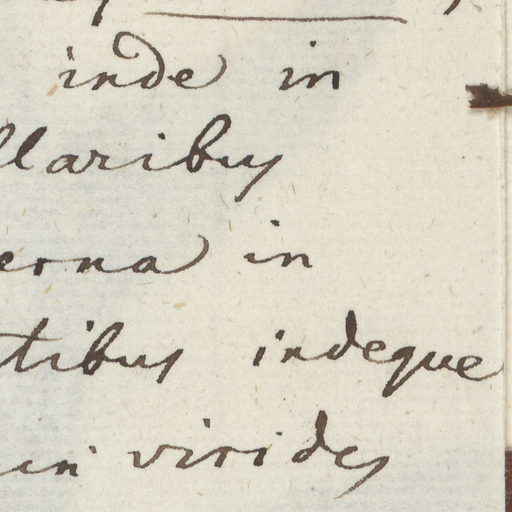 inde in
llaribus
erna in
tibus indeque
in virides